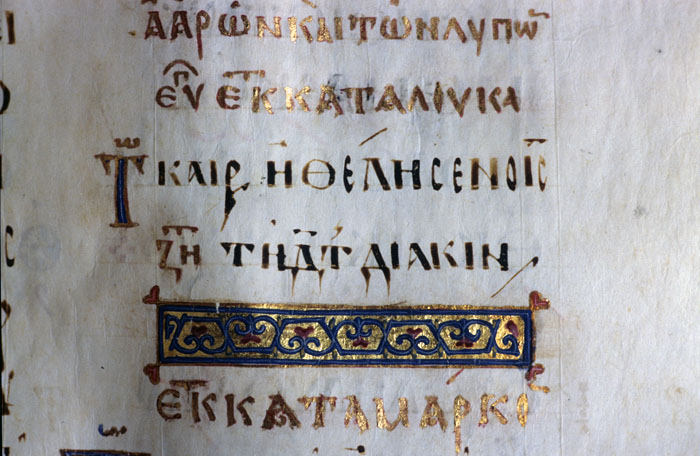 ΑΑΡΩΝ ΚΑΙ ΤΩΝ ΛΥΠῶ
ΕΥ ΕΚ ΚΑΤΑ ΛΟΥΚΑ
Τῶ ΚΑΙΡ ΗΘΕΛΗΣΕΝ Ο ΙΣ
ΖΗ ΤΗ Δ Τ ΔΙΑΚΙΝ
ΕΚ ΚΑΤΑ ΜΑΡΚΟ